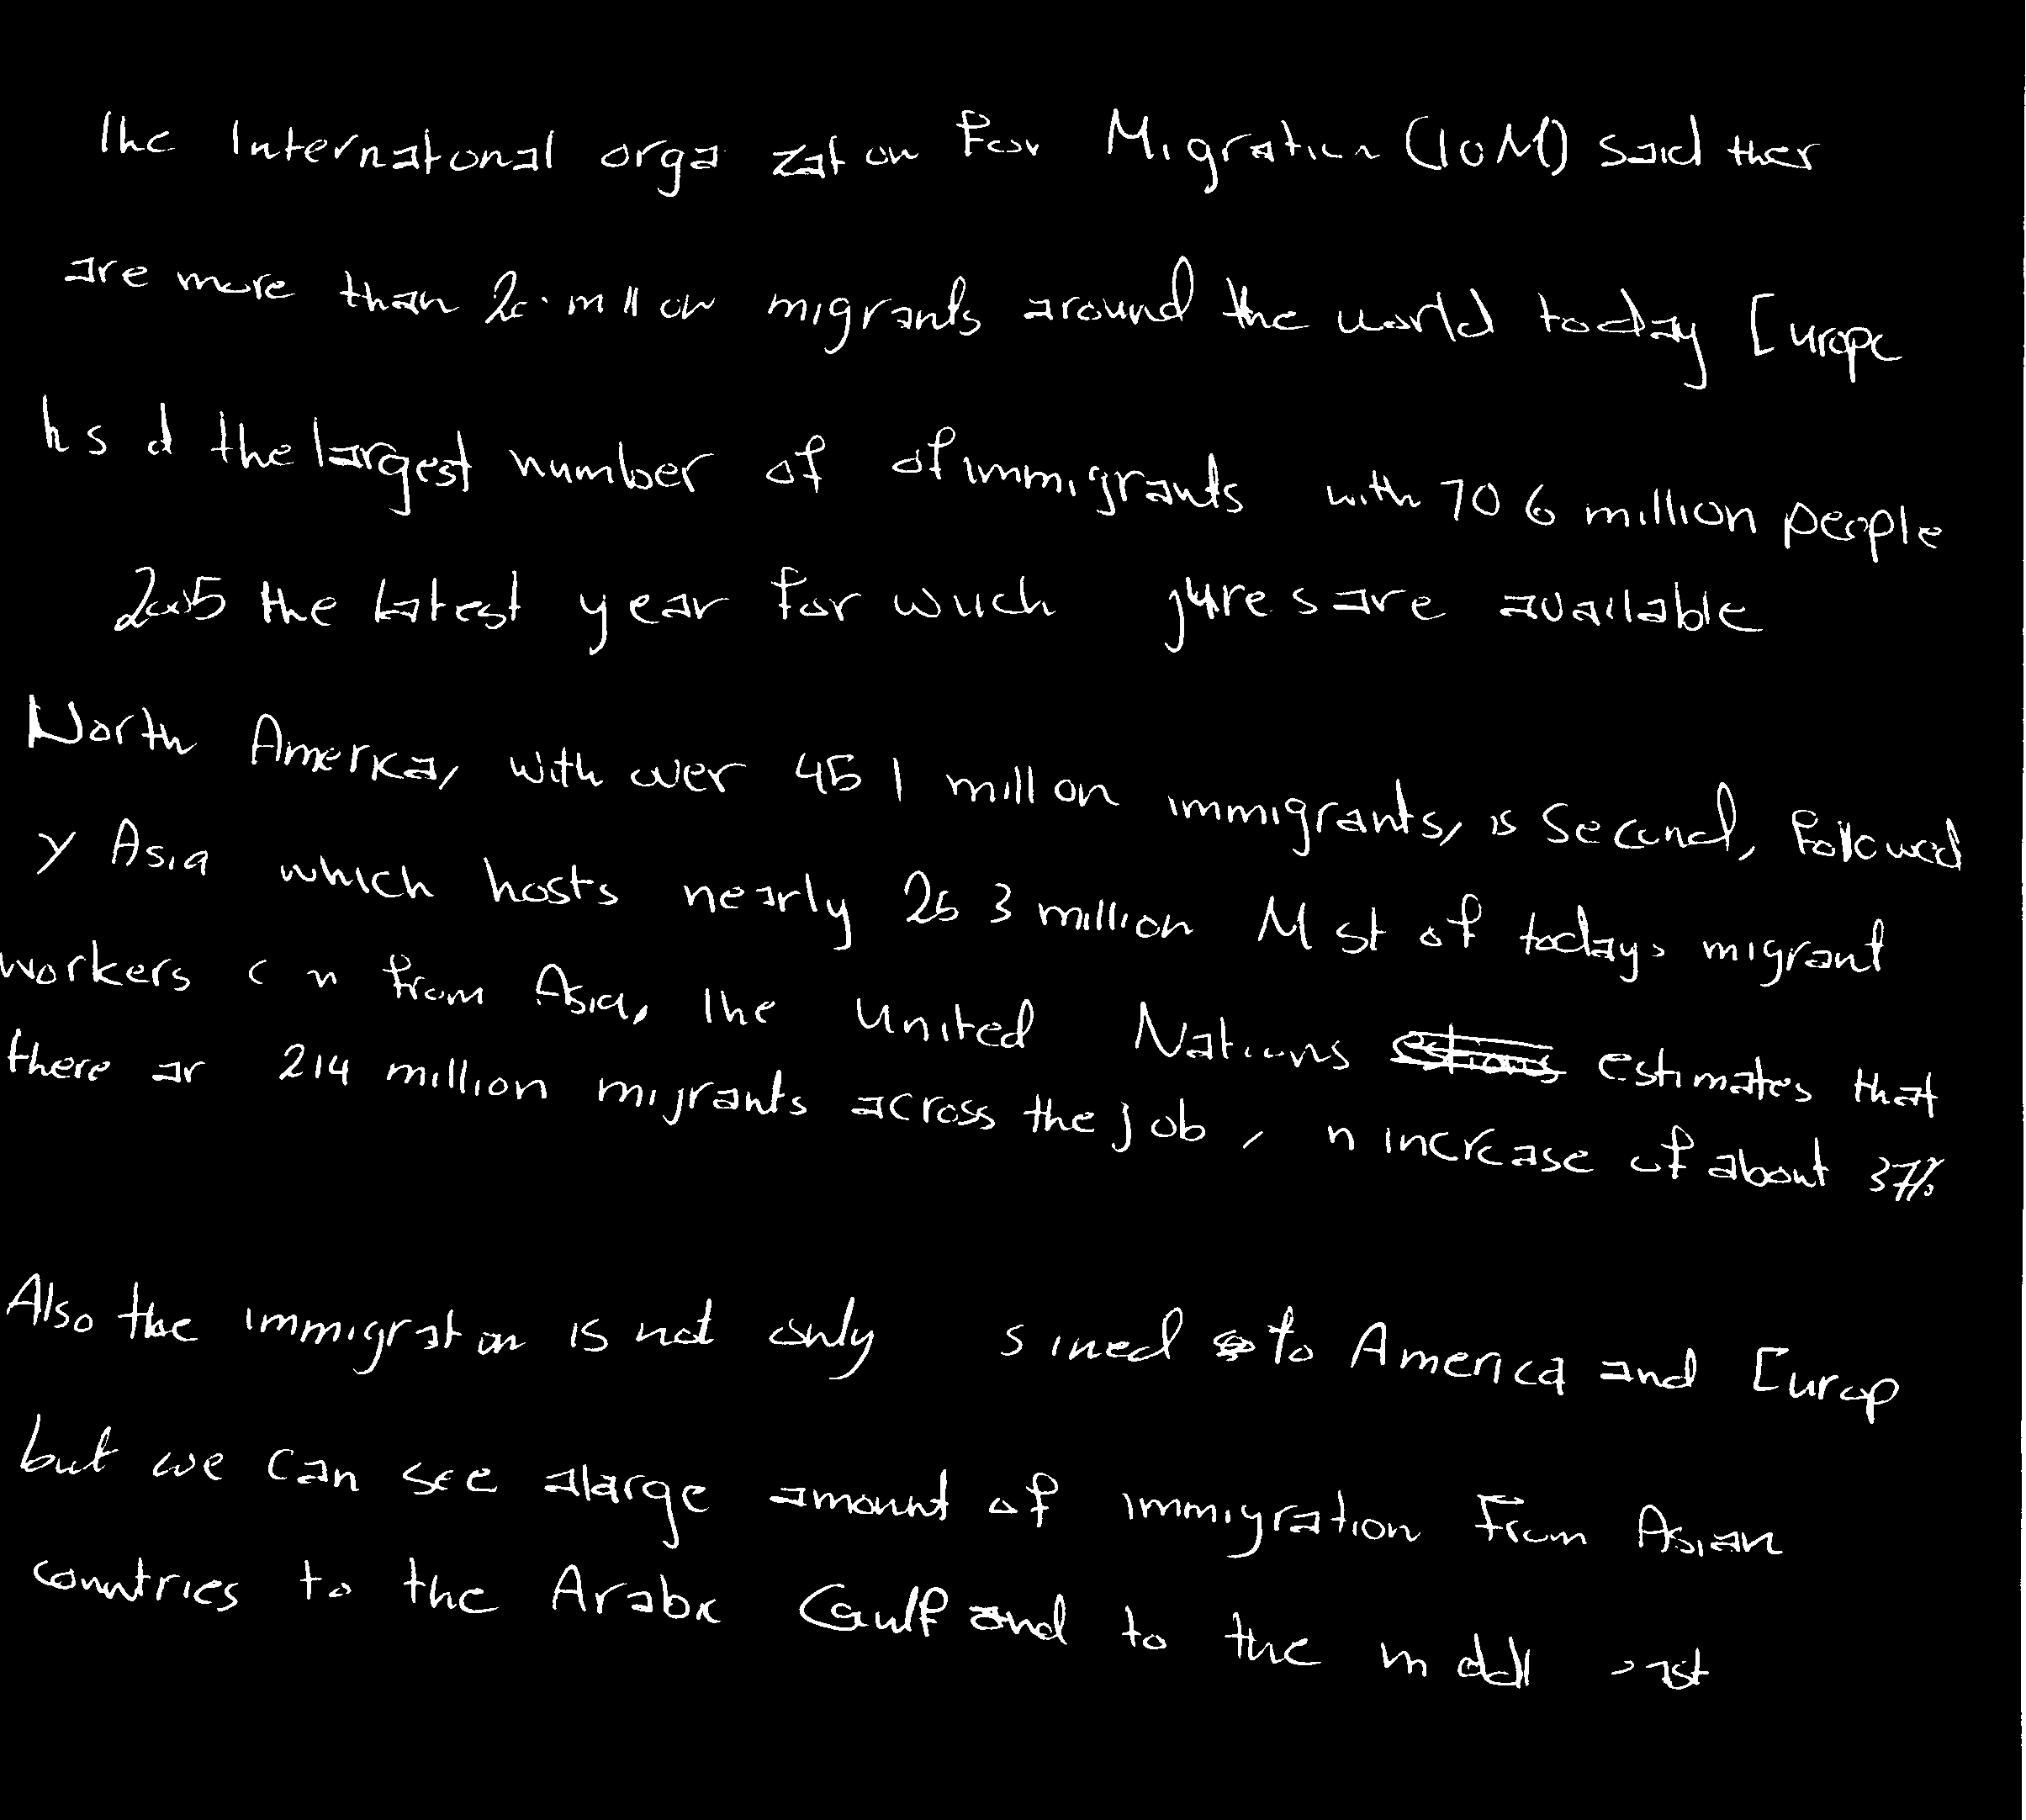 The International organization for Migration (IOM) said ther
are more than million migrants around the world today Europe
the largest number of of immigrants with 70 6 million people
2005 the latest year for which are available
North America, with over 45 1 million immigrants, is Second, followed
y Asia which hosts nearly 25 3 million Most of todays migrant
workers from Asia, The United Nations estimates that
there ar 214 million migrants across the , n increase of about 37%
Also the immigration is not only to America and Europ
but we can see alarge amount of immigration From Asian
countries to the Arabic Gaulf and to the middl east